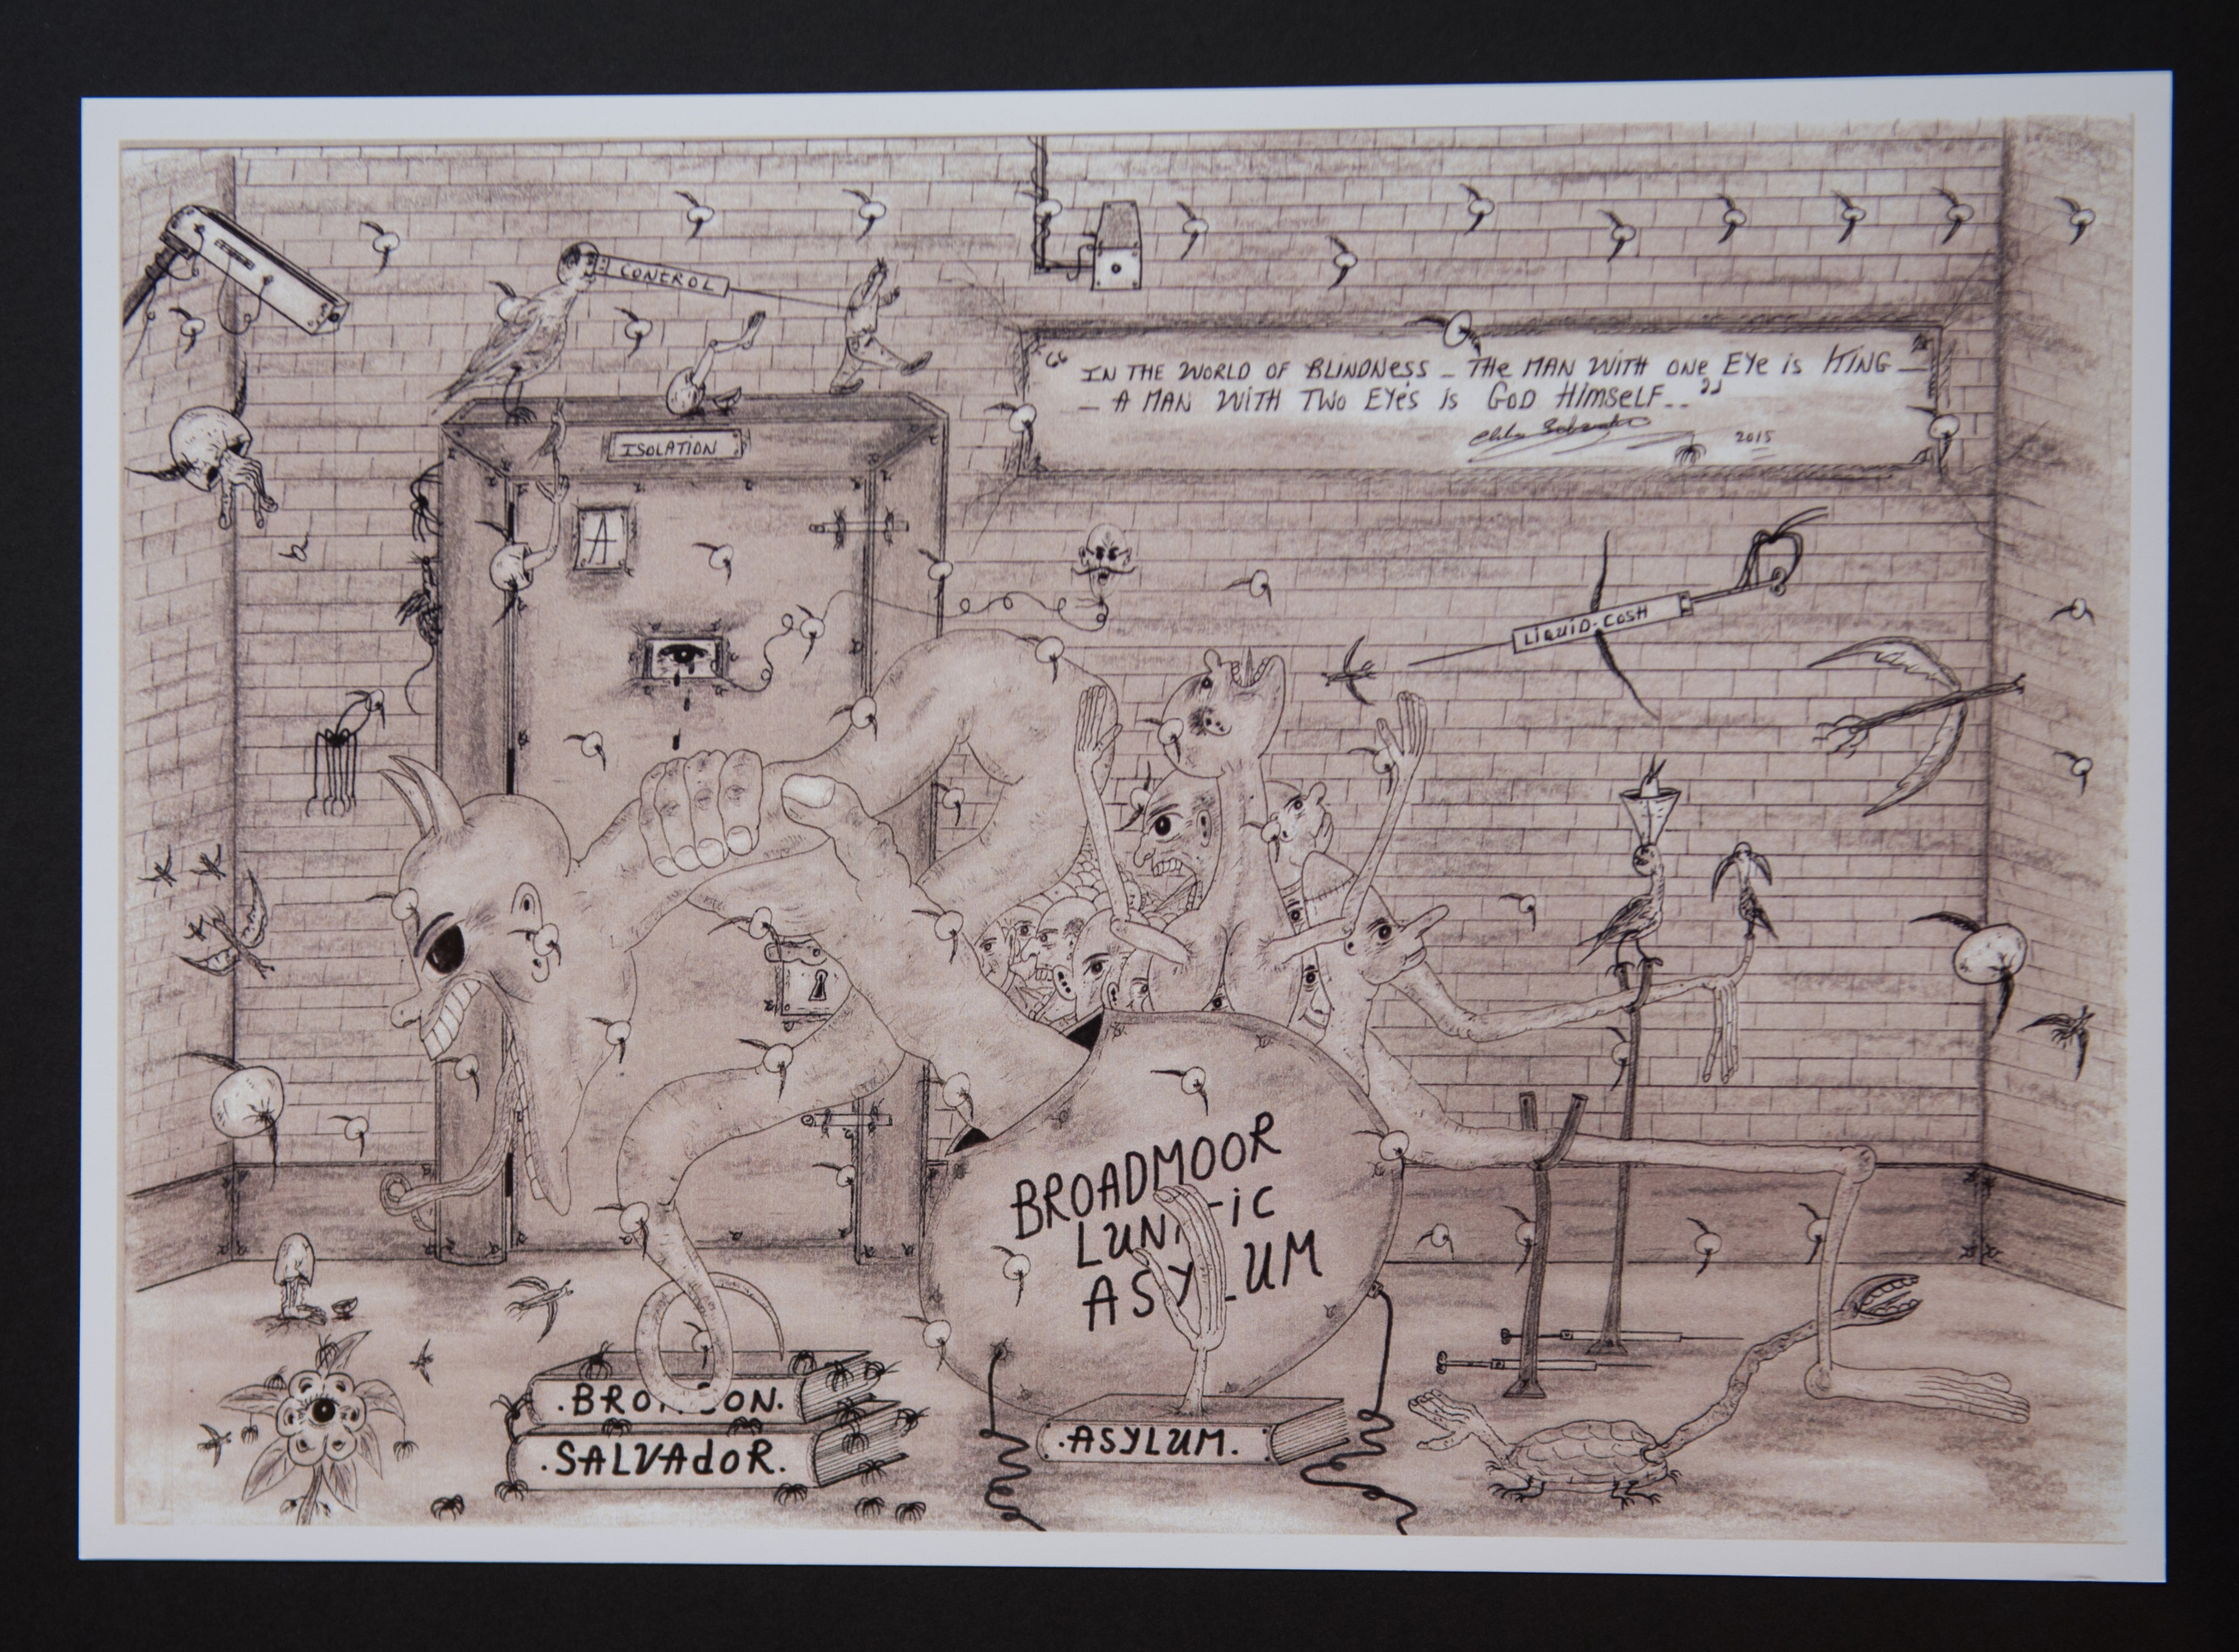 CONTROL
ISOLATION
A
“ IN THE WORLD OF BLINDNESS – THE MAN WITH ONE EYE IS KING –
– A MAN WITH TWO EYE'S IS GOD HIMSELF.. ”
2015
LIQUID-COSH
BROADMOOR
LUN TIC
ASYLUM
.BRO SON.
.SALVADOR.
.ASYLUM.